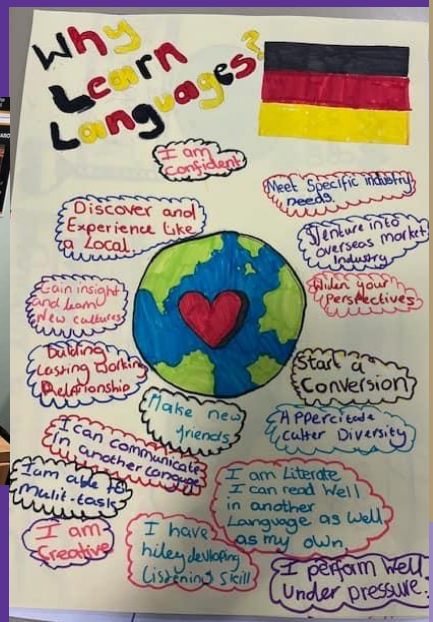 Why
Learn
Languages?
I am
confident
Meet Specific industry
needs.
Discover and
Experience like
a Local.
Venture into
overseas market
Industry
Gain insight
and learn
New cultures
Widen your
Perspectives
Building
Lasting Working
Relationship
Start a
Conversion
Make new
friends
Appercitade
culter Diversity
I can communicate
In another Languge
I am able to
mulit-task
I am Literate
I can read Well
in another
Language as well
as my own
I am
Creative
I have
hiley devloping
Listening Skill
I perform well
under pressure.